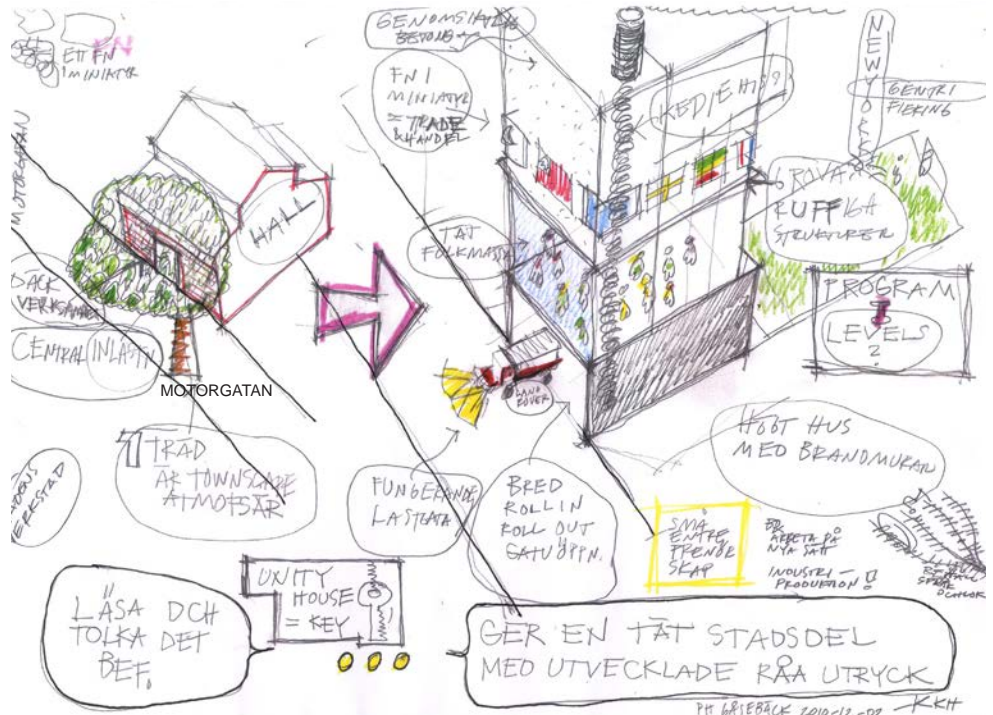 ETT FN
I MINIATYR
FN
MOTORGATAN
HALL
DÄCK
VERKSTAD
CENTRAL INLASTN
MOTORGATAN
TRÄD
ÄR TOWNSCAPE
ATMOSFÄR
VERKSTAD
BETONG
FN I
MINIATYR
= TRADE
& HANDEL
TÄT
FOLKMASSA
KEDJEHISS
NEW YORK
GENTRI
FIERING
GROVA
RUFFIGA
STRUKTURER
PROGRAM
LEVELS
2
LAND
ROVER
HÖGT HUS
MED BRANDMURAR
FUNGERANDE
LASTGATA
BRED
ROLL IN
ROLL OUT
GATUÖPPN.
SMÅ
ENTRE
PRENÖR
SKAP
ARBETA PÅ
NYA SÄTT
INDUSTRI-
PRODUKTION!
UNITY
HOUSE
= KEY
LÄSA OCH
TOLKA DET
BEF.
GER EN TÄT STADSDEL
MED UTVECKLADE RÅA UTRYCK
KKH